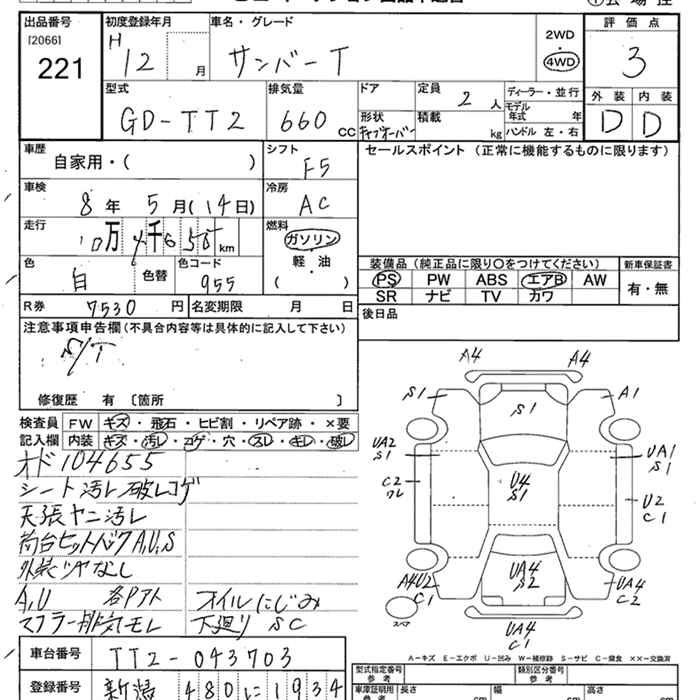 出品番号 初度登録年月 車名・グレード 評価点
[2066] 221
H 12 月 サンバー T 2WD 4WD 3
外装 内装
D D
型式 排気量 ドア 定員 2 人 ディーラー・並行
GD-TT2 660 CC 形状 キャブオーバー 積載 kg モデル年式 年
ハンドル 左・右
車歴 シフト セールスポイント (正常に機能するものに限ります)
自家用・( ) F5
車検 冷房
8 年 5 月 (14日) AC
走行 燃料
10万 4千6 55 km ガソリン
軽・油
( )
色 色替 色コード
白 955
装備品 (純正品に限り〇をつけてください) 新車保証書
PS PW ABS エアB AW 有・無
SR ナビ TV カワ
R券 7530 円 名変期限 月 日
後日品
注意事項申告欄(不具合内容等は具体的に記入して下さい)
S/T
修復歴 有 〔箇所 〕
検査員 FW キズ・飛石・ヒビ割・リペア跡・×要
記入欄 内装 キズ・汚レ・コゲ・穴・スレ・キレ・破レ
オド104655
シート汚レ破レコゲ
天張ヤニ汚レ
荷台ヒットバックA,U,S
外装ツヤなし
A,U 各Pアト オイルにじみ
マフラー排気モレ 下廻りSC
A4 A4
S1 S1 A1
UA2 S1 UA1 S1
C2 ワレ U4 S1 U2 C1
A4U2 C1 UA4 S2 UA4 C2
スペア UA4 C1
A-キズ E-エクボ U-凹み W-補修跡 S-サビ C-腐食 XX-交換済
車台番号 TT2-043703
型式指定番号 参考 類別区分番号 参考
登録番号 新潟 480 に 1934
車庫証明用 参考 長さ cm 幅 cm 高さ cm